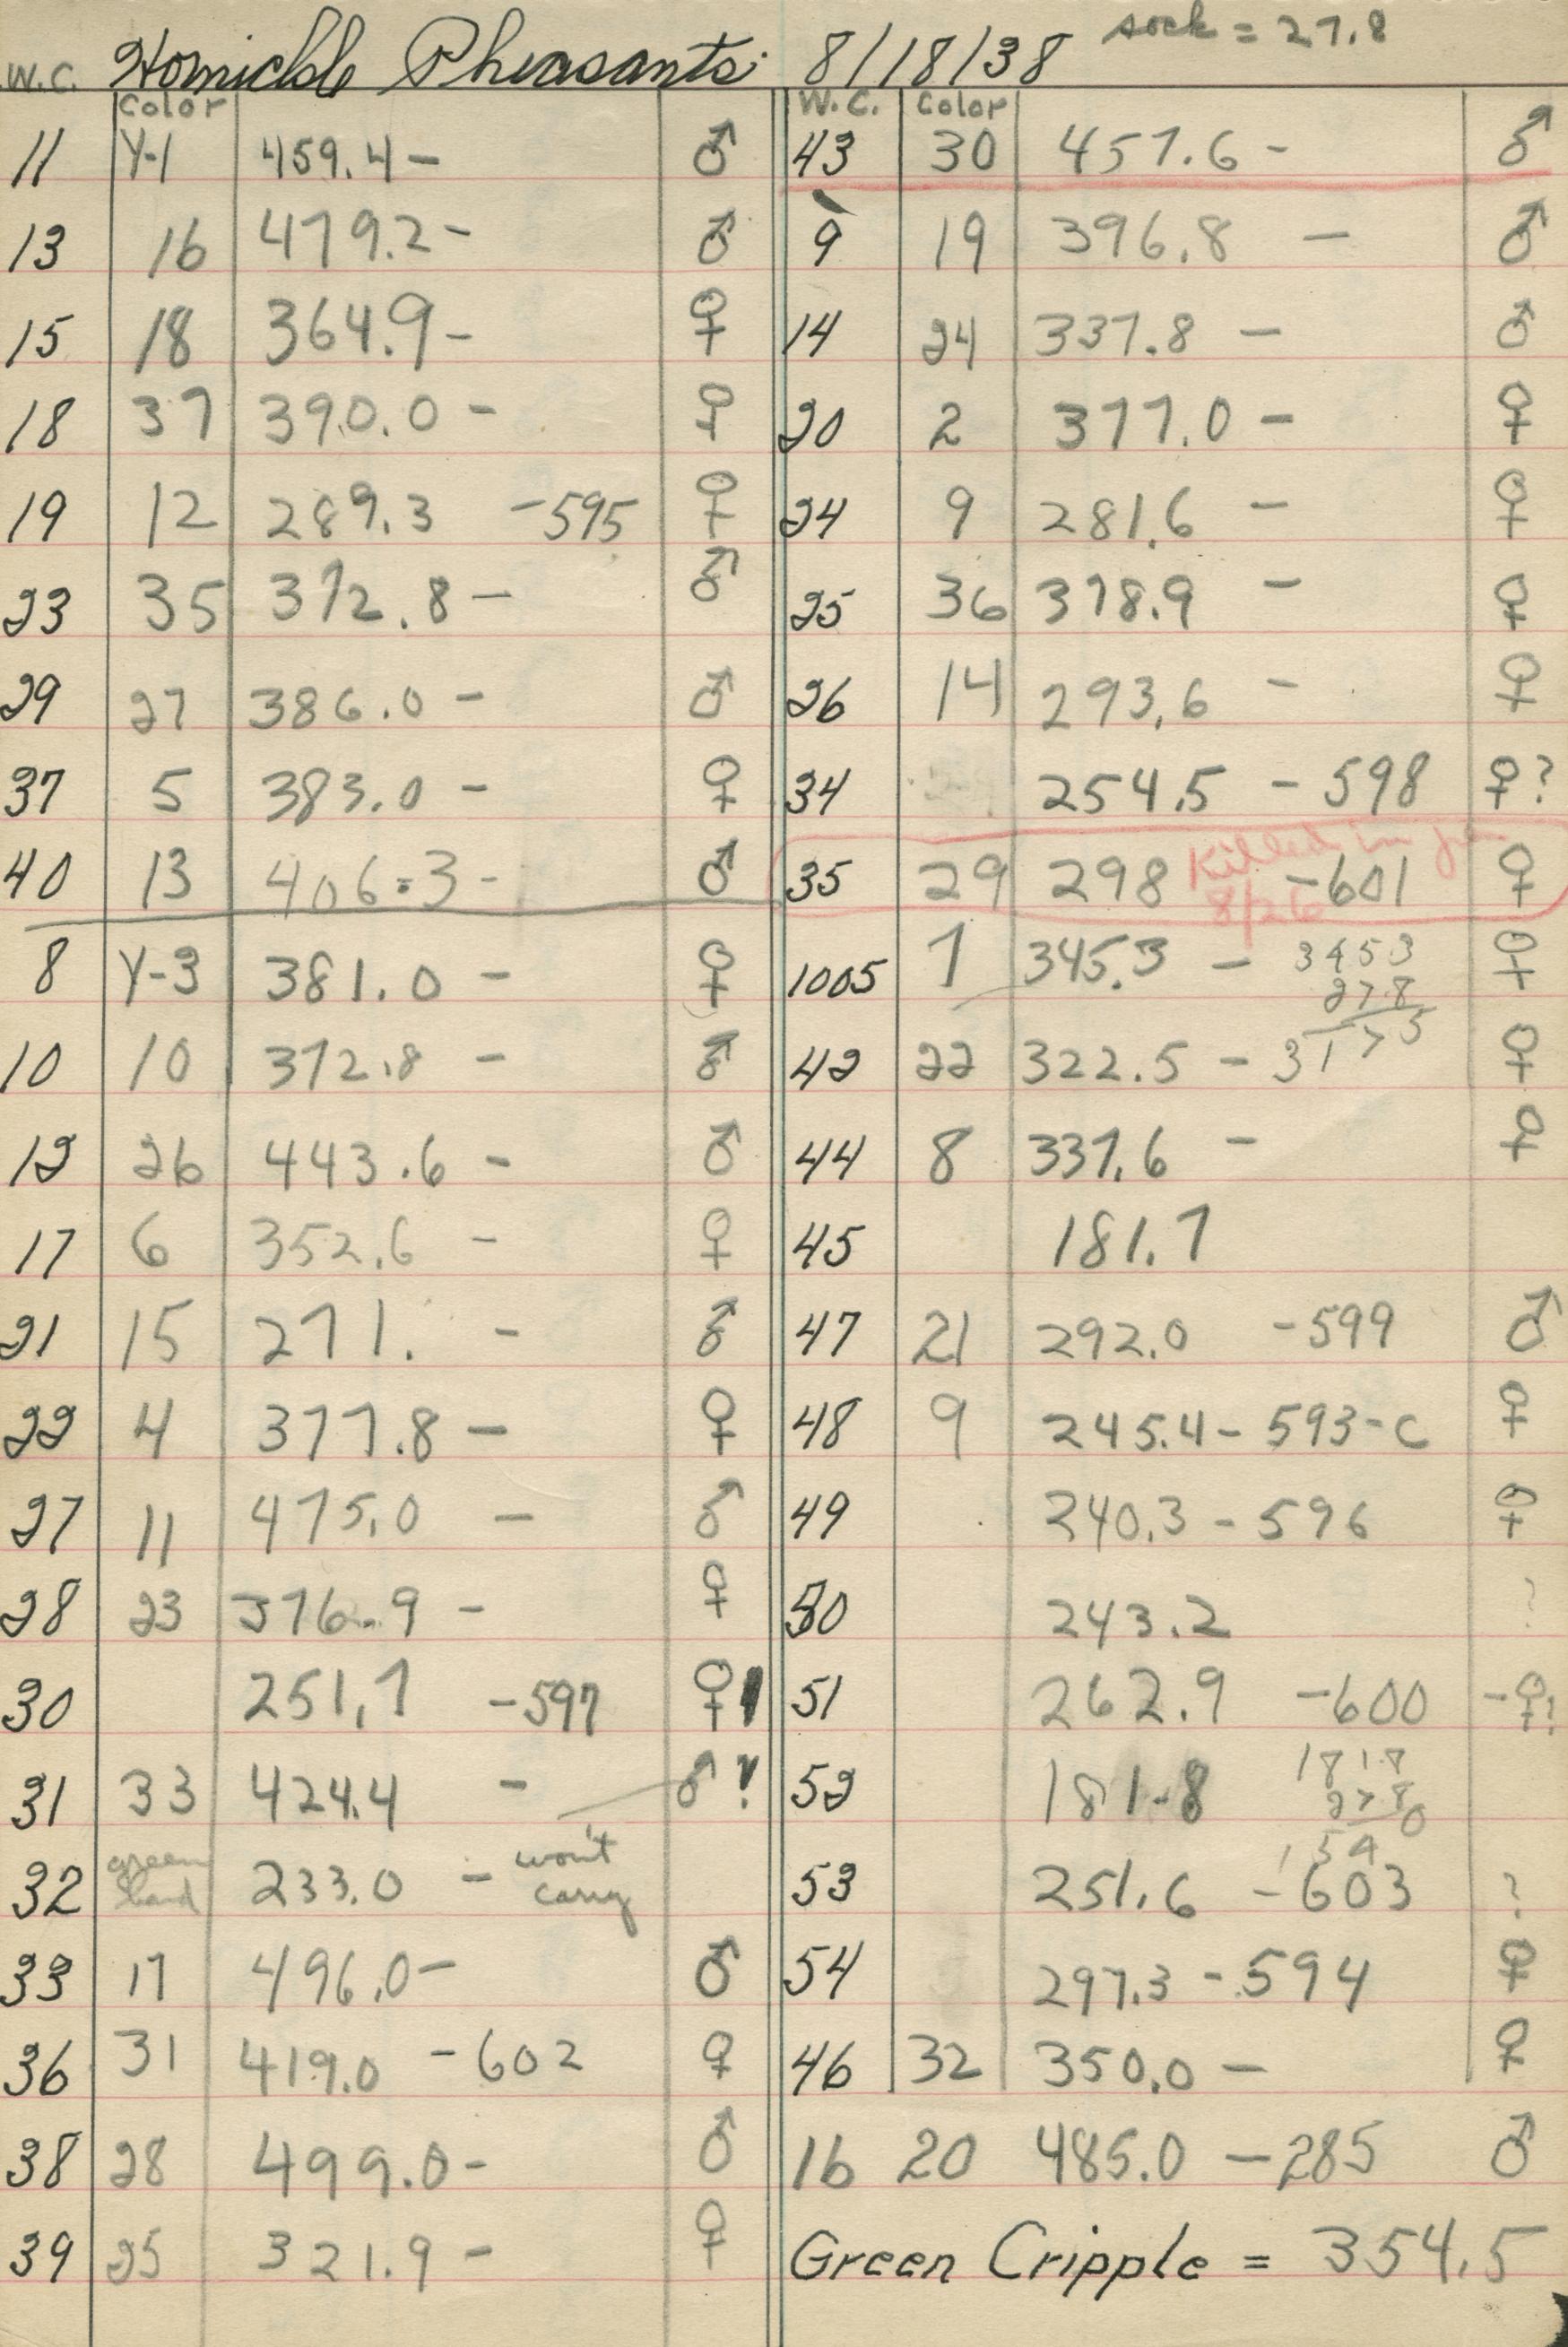 sock = 27.8
W.C. Hornickle Pheasants 8/18/38
Color
11 Y-1 459.4 - ♂
13 16 479.2 - ♂
15 18 364.9 - ♀
18 37 390.0 - ♀
19 12 289.3 - 595 ♀
23 35 372.8 - ♂
29 27 386.0 - ♂
37 5 383.0 - ♀
40 13 406.3 - ♂
8 Y-3 381.0 - ♀
10 10 372.8 - ♂
12 26 443.6 - ♂
17 6 352.6 - ♀
21 15 271. - ♂
22 4 377.8 - ♀
27 11 475.0 - ♂
28 23 376.9 - ♀
30 251.7 - 597 ♀
31 33 424.4 - ♂ ?
32 green band 233.0 - won't carry
33 17 496.0 - ♂
36 31 419.0 - 602 ♀
38 28 499.0 - ♂
39 25 321.9 - ♀
W.C. Color
43 30 457.6 - ♂
9 19 396.8 - ♂
14 24 337.8 - ♂
20 2 377.0 - ♀
24 9 281.6 - ♀
25 36 378.9 - ♀
26 14 293.6 - ♀
34 254.5 - 598 ♀?
Killed in
35 29 298 - 601 ♀
8/26
1005 7 345.3 - ♀
3453
27.8
3175
42 22 322.5 - ♀
44 8 337.6 - ♀
45 181.7
47 21 292.0 - 599 ♂
48 9 245.4 - 593-C ♀
49 240.3 - 596 ♀
50 243.2 ?
51 262.9 - 600 - ♀?
52 181.8
181.8
27.8
1540
53 251.6 - 603 ?
54 297.3 - 594 ♀
46 32 350.0 - ♀
16 20 485.0 - 285 ♂
Green Cripple = 354.5